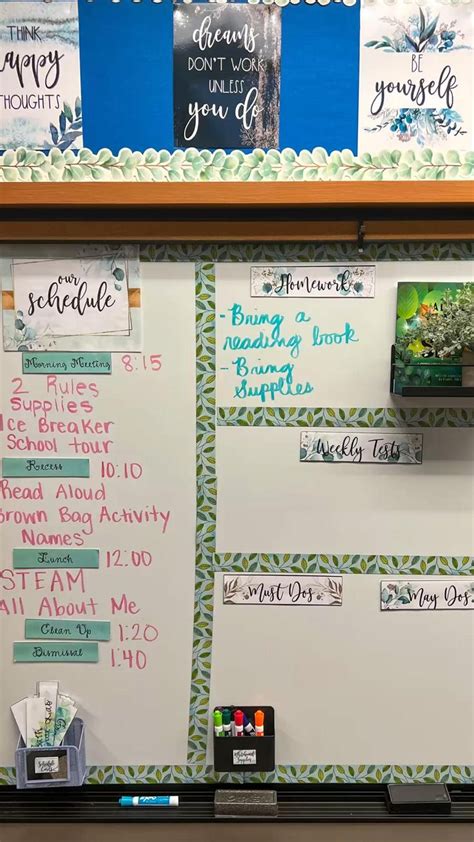 THINK
happy
THOUGHTS
dreams
DON'T WORK
UNLESS
you do
BE
yourself
our
schedule
Morning Meeting 8:15
2 Rules
Supplies
Ice Breaker
School tour
Recess 10:10
Read Aloud
Brown Bag Activity
Names
Lunch 12:00
STEAM
All About Me
Clean Up 1:20
Dismissal 1:40
Homework
- Bring a
reading book
- Bring
Supplies
Weekly Tests
Must Dos
May Dos